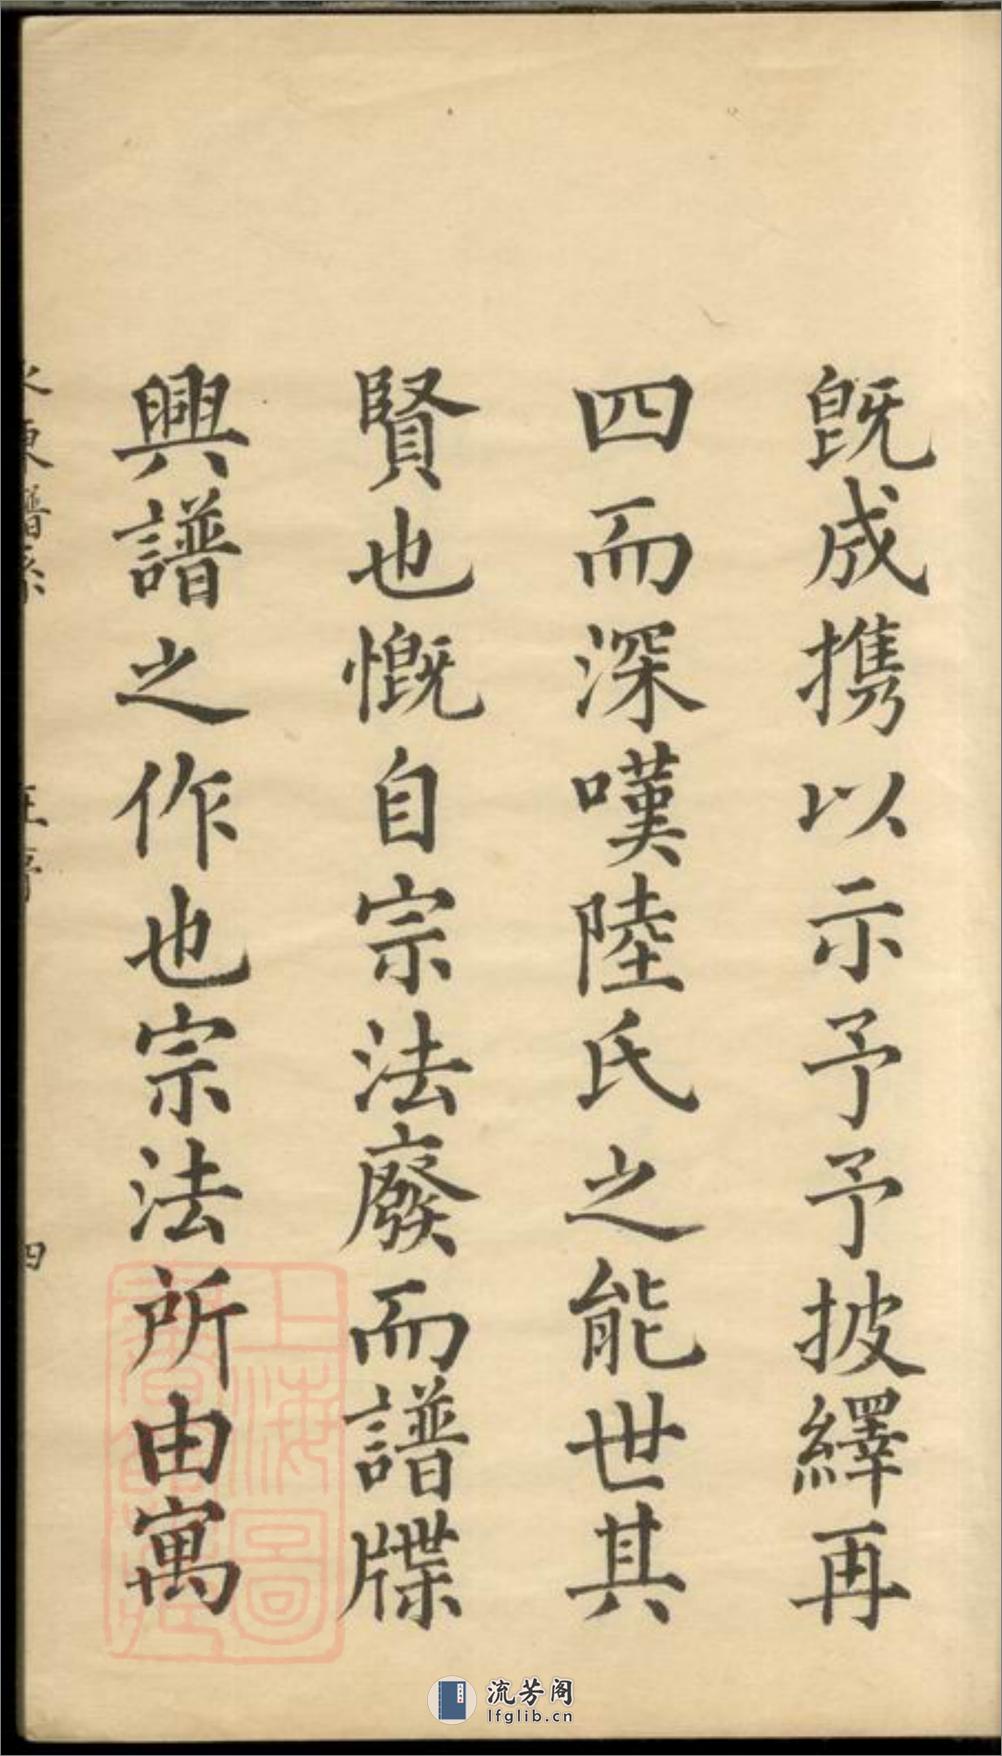 既成携以示予予披繹再
四而深嘆陸氏之能世其
賢也慨自宗法廢而譜牒
興譜之作也宗法所由寓
四
上海圖
流芳阁
lfglib.cn